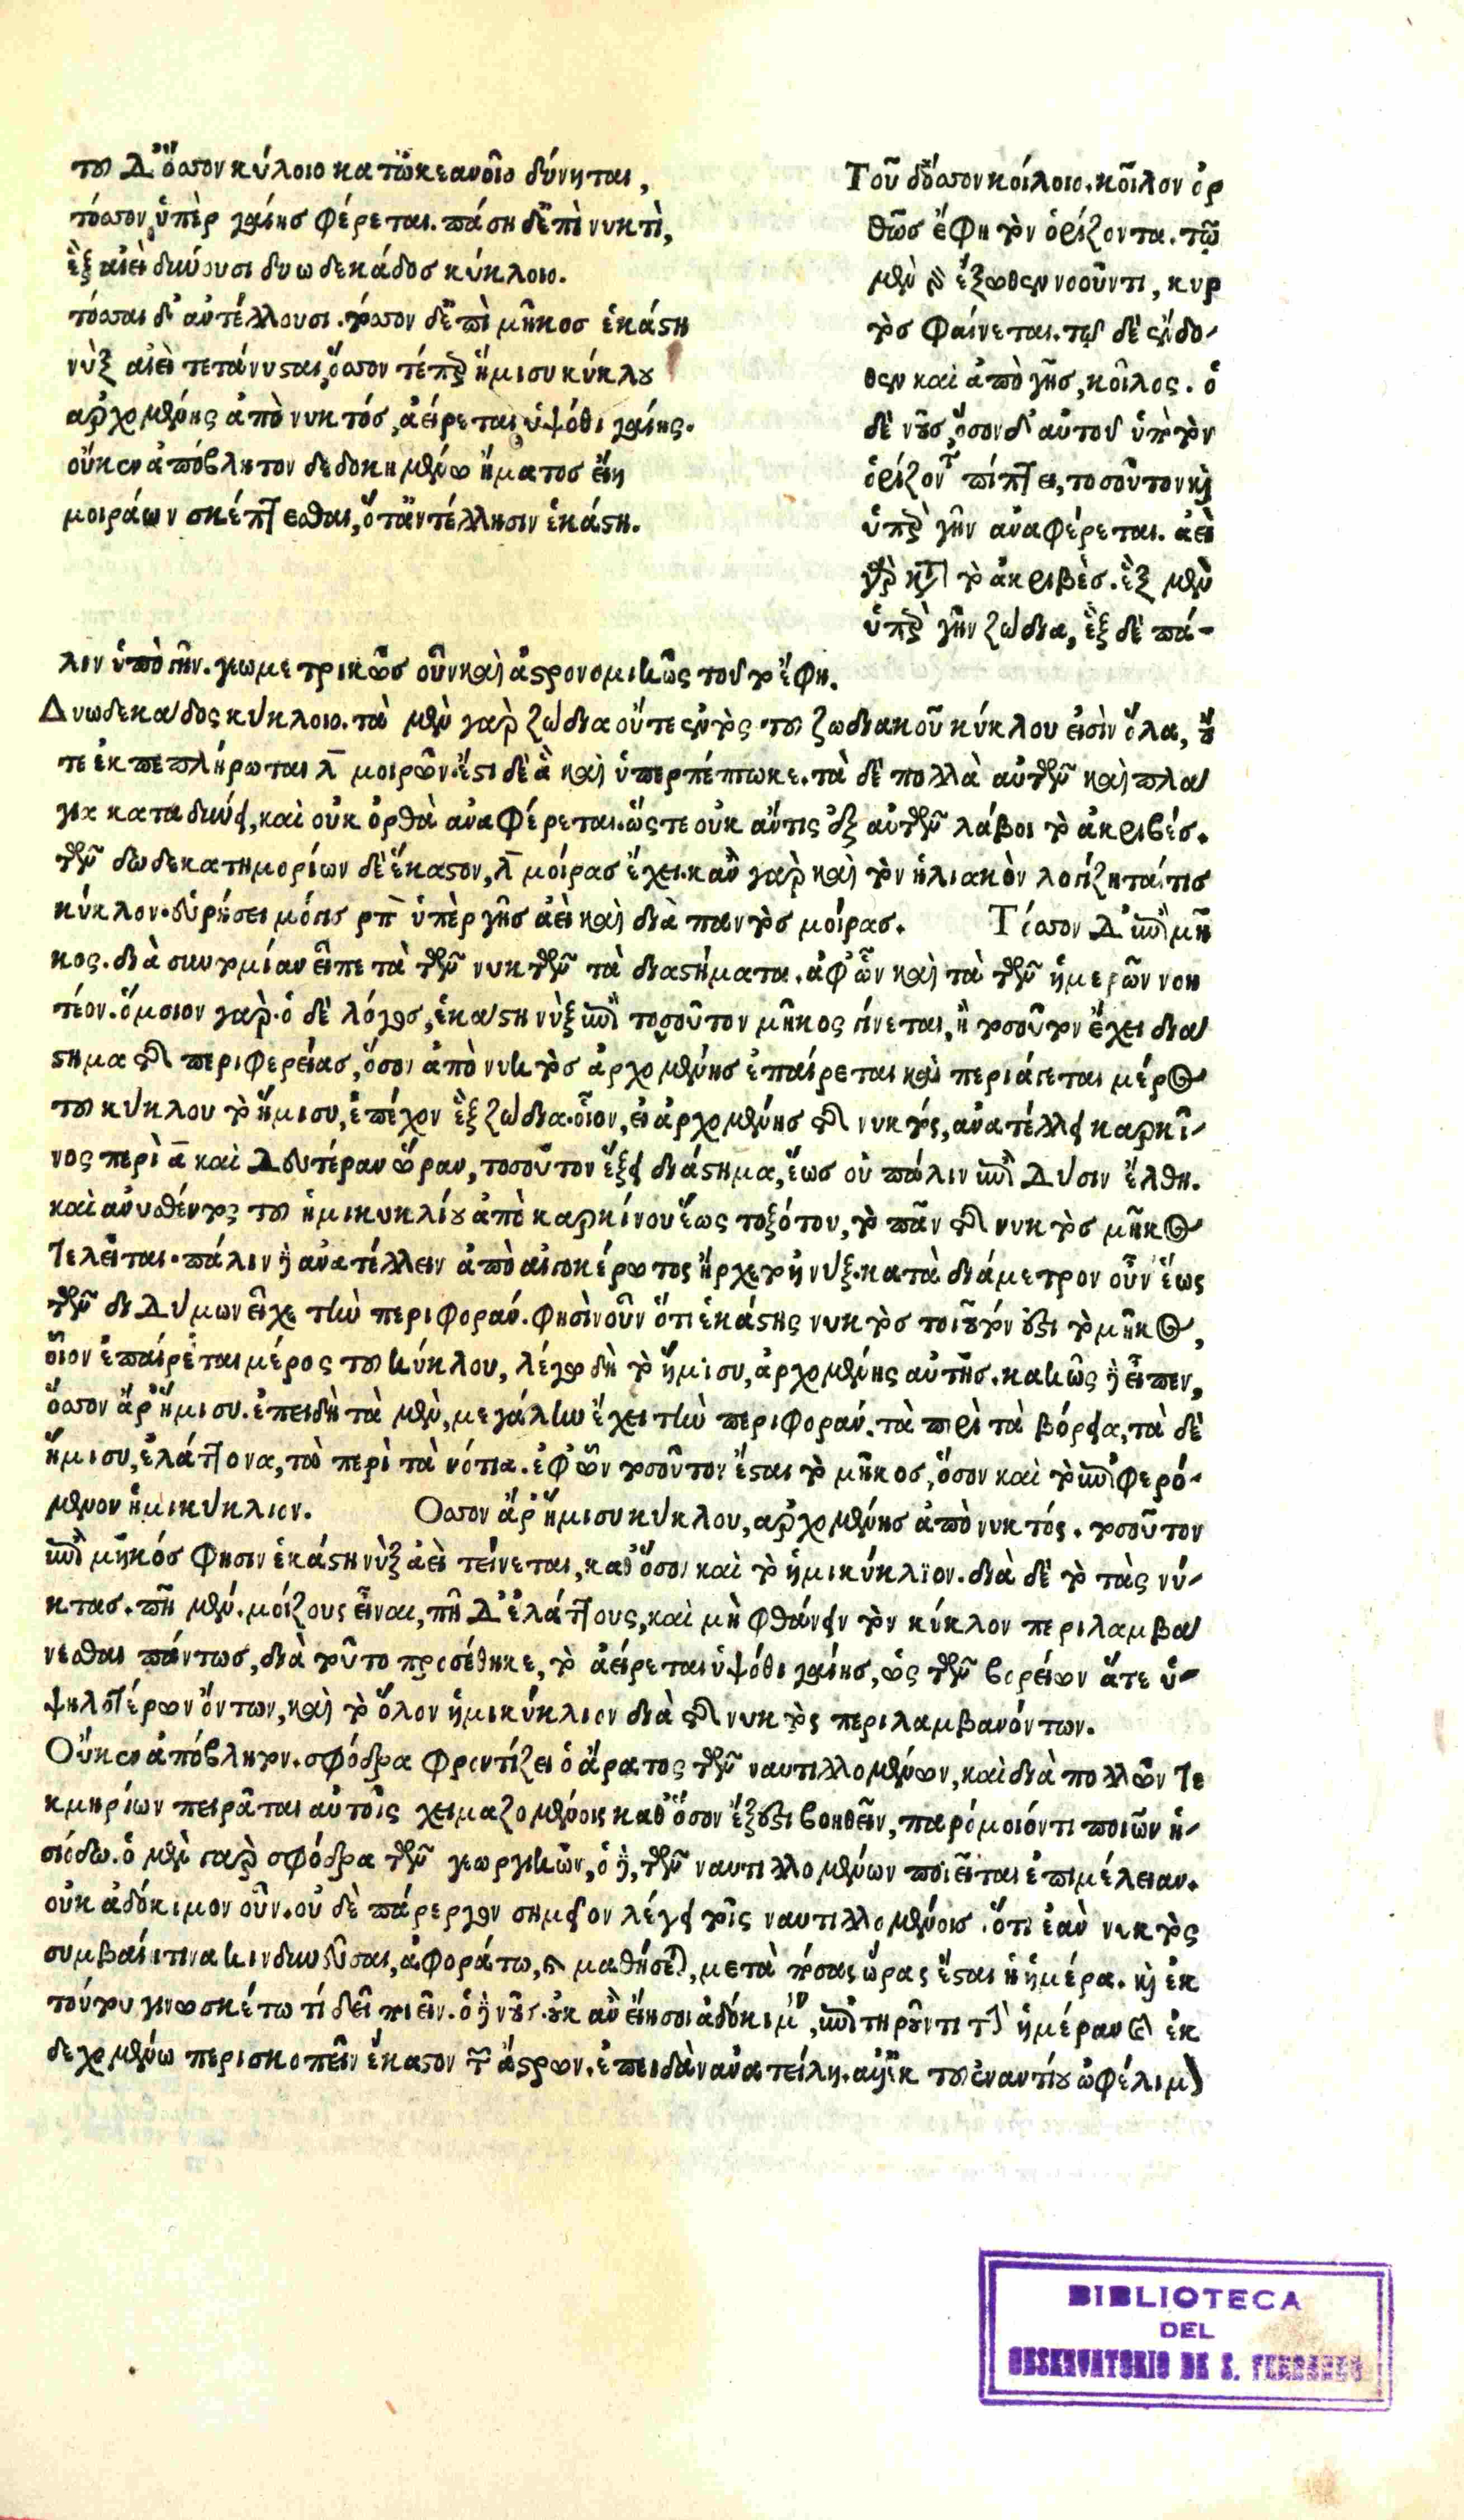 τοῦ Δ᾽ ὅσσον κύλοιο κατ᾽ ὠκεανοῖο δύνηται,
τόσσον ὑπὲρ γαίης φέρεται. πάσῃ δ᾽ ἐπὶ νυκτὶ,
ἓξ αἰεὶ δύνουσι δυωδεκάδος κύκλοιο.
τόσσαι δ᾽ ἀντέλλουσι. τόσσον δ᾽ ἐπὶ μῆκος ἑκάστη
νὺξ αἰεὶ τετάνυσται, ὅσσον τέπερ ἥμισυ κύκλου
ἀρχομένης ἀπὸ νυκτός, ἀείρεται ὑψόθι γαίης.
οὔκεν ἀπόβλητον δεδοκημένῳ ἤματος εἴη
μοιράων σκέπτεσθαι, ὅτ᾽ ἀντέλλησιν ἑκάστη.
Τοῦ δ᾽ ὅσσον κοίλοιο. κοῖλον ὀρ
θῶς ἔφη τὸν ὁρίζοντα. τῷ
μὲν γὰρ ἔξωθεν νοοῦντι, κυρ
τὸς φαίνεται. τῷ δὲ ἔνδο-
θεν καὶ ἀπὸ γῆς, κοῖλος. ὁ
δὲ νοῦς, ὅσον δ᾽ αὐτοῦ ὑπὸ τὸν
ὁρίζοντα πίπτει, τοσοῦτον καὶ
ὑπὲρ γῆν ἀναφέρεται. ἀεὶ
γὰρ κατὰ τὸ ἀκριβὲς. ἓξ μὲν
ὑπὲρ γῆν ζώδια, ἓξ δὲ πά-
λιν ὑπὸ γῆν. γεωμετρικῶς οὖν καὶ ἀστρονομικῶς τοῦτο ἔφη.
Δυωδεκάδος κύκλοιο. τὰ μὲν γὰρ ζώδια οὔτε ἐντὸς τοῦ ζωδιακοῦ κύκλου εἰσὶν ὅλα, οὔ
τε ἐκπεπλήρωται λ̄ μοιρῶν. ἔστι δὲ ἃ καὶ ὑπερπέπτωκε. τὰ δὲ πολλὰ αὐτῶν καὶ πλά
για καταδύνει, καὶ οὐκ ὀρθὰ ἀναφέρεται. ὥστε οὐκ ἄν τις ἐξ αὐτῶν λάβοι τὸ ἀκριβές.
τῶν δωδεκατημορίων δὲ ἕκαστον, λ̄ μοίρας ἔχει. κἂν γὰρ καὶ τὸν ἡλιακὸν λογίζηταί τις
κύκλον. εὑρήσει μόγις ρπ̄ ὑπὲρ γῆς ἀεὶ καὶ διὰ παντὸς μοίρας. Τόσσον Δ᾽ ἐπὶ μῆ
κος. διὰ συντομίαν εἶπε τὰ τῶν νυκτῶν τὰ διαστήματα. ἀφ᾽ ὧν καὶ τὰ τῶν ἡμερῶν νοη
τέον. ὅμοιον γάρ. ὁ δὲ λόγος, ἑκάστη νὺξ ἐπὶ τοσοῦτον μῆκος γίνεται, ἢ τοσοῦτον ἔχει διά
στημα τῆς περιφερείας, ὅσον ἀπὸ νυκτὸς ἀρχομένης ἐπαίρεται καὶ περιάγεται μέρος
τοῦ κύκλου τὸ ἥμισυ, ἐπέχον ἓξ ζώδια. οἷον, εἰ ἀρχομένης τῆς νυκτός, ἀνατέλλει καρκί-
νος περὶ ᾱ καὶ Δευτέραν ὥραν, τοσοῦτον ἕξει διάστημα, ἕως οὗ πάλιν ἐπὶ Δύσιν ἔλθῃ.
καὶ ἀνυσθέντος τοῦ ἡμικυκλίου ἀπὸ καρκίνου ἕως τοξότου, τὸ πᾶν τῆς νυκτὸς μῆκος
Τελεῖται. πάλιν δὲ ἀνατέλλειν ἀπὸ αἰγοκέρωτος ἤρχετο ἡ νύξ. κατὰ διάμετρον οὖν ἕως
τῶν διΔύμων εἶχε τὴν περιφοράν. φησὶν οὖν ὅτι ἑκάστης νυκτὸς τοιοῦτόν ἐστι τὸ μῆκος,
οἷον ἐπαίρεται μέρος τοῦ κύκλου, λέγω δὴ τὸ ἥμισυ, ἀρχομένης αὐτῆς. καλῶς δὲ εἶπεν,
ὅσσον ἄρ᾽ ἥμισυ. ἐπειδὴ τὰ μὲν, μεγάλην ἔχει τὴν περιφοράν. τὰ περὶ τὰ βόρεια, τὰ δὲ
ἥμισυ, ἐλάττονα, τὰ περὶ τὰ νότια. ἐφ᾽ ὧν τοσοῦτον ἔσται τὸ μῆκος, ὅσον καὶ τὸ ἐπιφερό-
μενον ἡμικύκλιον. Οσσον ἄρ᾽ ἥμισυ κύκλου, ἀρχομένης ἀπὸ νυκτός. τοσοῦτον
ἐπὶ μῆκός φησιν ἑκάστη νὺξ ἀεὶ τείνεται, καθ᾽ ὅσον καὶ τὸ ἡμικύκλιον. διὰ δὲ τὸ τὰς νύ-
κτας. πῆ μέν. μείζους εἶναι, πῆ Δ᾽ ἐλάττους, καὶ μὴ φθάνειν τὸν κύκλον περιλαμβά
νεσθαι πάντως, διὰ τοῦτο προσέθηκε, τὸ ἀείρεται ὑψόθι γαίης, ὡς τῶν βορείων ἅτε ὑ-
ψηλοτέρων ὄντων, καὶ τὸ ὅλον ἡμικύκλιον διὰ τῆς νυκτὸς περιλαμβανόντων.
Οὔκεν ἀπόβλητον. σφόδρα φροντίζει ὁ ἄρατος τῶν ναυτιλλομένων, καὶ διὰ πολλῶν τε
κμηρίων πειρᾶται αὐτοῖς χειμαζομένοις καθ᾽ ὅσον ἔξεστι βοηθεῖν, παρόμοιόν τι ποιῶν ἡ-
σιόδῳ. ὁ μὲν γὰρ σφόδρα τῶν γεωργικῶν, ὁ δὲ, τῶν ναυτιλλομένων ποιεῖται ἐπιμέλειαν.
οὐκ ἀδόκιμον οὖν. οὐδὲ πάρεργον σημεῖον λέγει τοῖς ναυτιλλομένοις. ὅτι ἐὰν νυκτὸς
συμβαίη τινα κινδυνεῦσαι, ἀφοράτω, καὶ μαθήσεται, μετὰ πόσας ὥρας ἔσται ἡ ἡμέρα. καὶ ἐκ
τούτου γινωσκέτω τί δεῖ ποιεῖν. ὁ δὲ νοῦς. οὐκ ἂν εἴη σοι ἀδόκιμον, ἐπιτηροῦντι τὴν ἡμέραν καὶ ἐκ
δεχομένῳ περισκοπεῖν ἕκαστον τῶν ἄστρων. ἐπειδὰν ἀνατείλῃ. ἀλλ᾽ ἐκ τοῦ ἐναντίου ὠφέλιμον
BIBLIOTECA
DEL
OBSERVATORIO DE S. FERNANDO